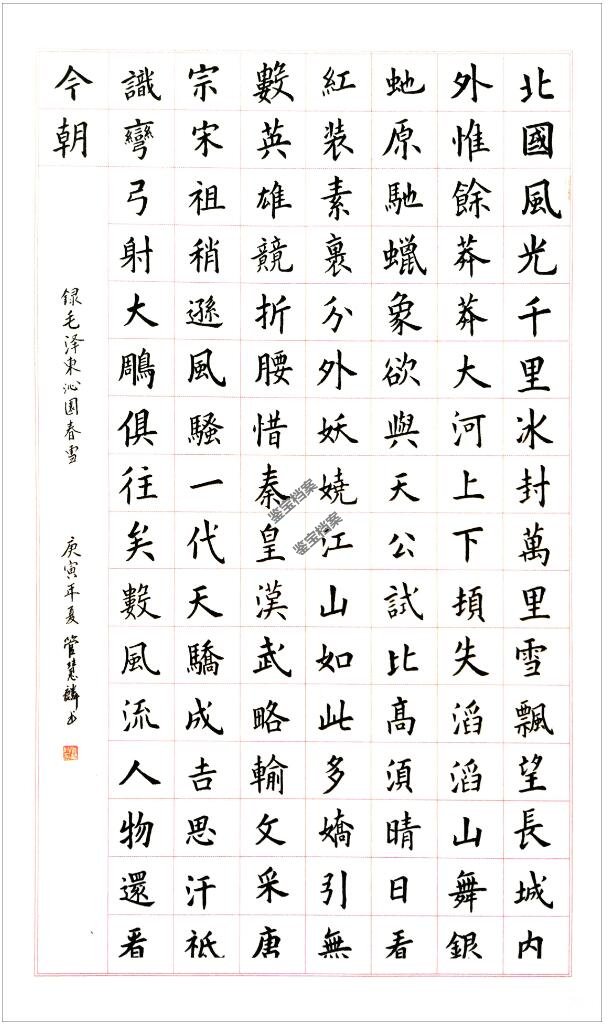 北國風光千里冰封萬里雪飄望長城内
外惟餘莽莽大河上下頓失滔滔山舞銀
虵原馳蠟象欲與天公試比高須晴日看
紅装素裹分外妖嬈江山如此多嬌引無
數英雄競折腰惜秦皇漢武略輸文采唐
宗宋祖稍遜風騷一代天驕成吉思汗祗
識彎弓射大鵰俱往矣數風流人物還看
今朝
録毛泽東沁园春雪 庚寅年夏 管慧麟书
鉴宝档案
鉴宝档案